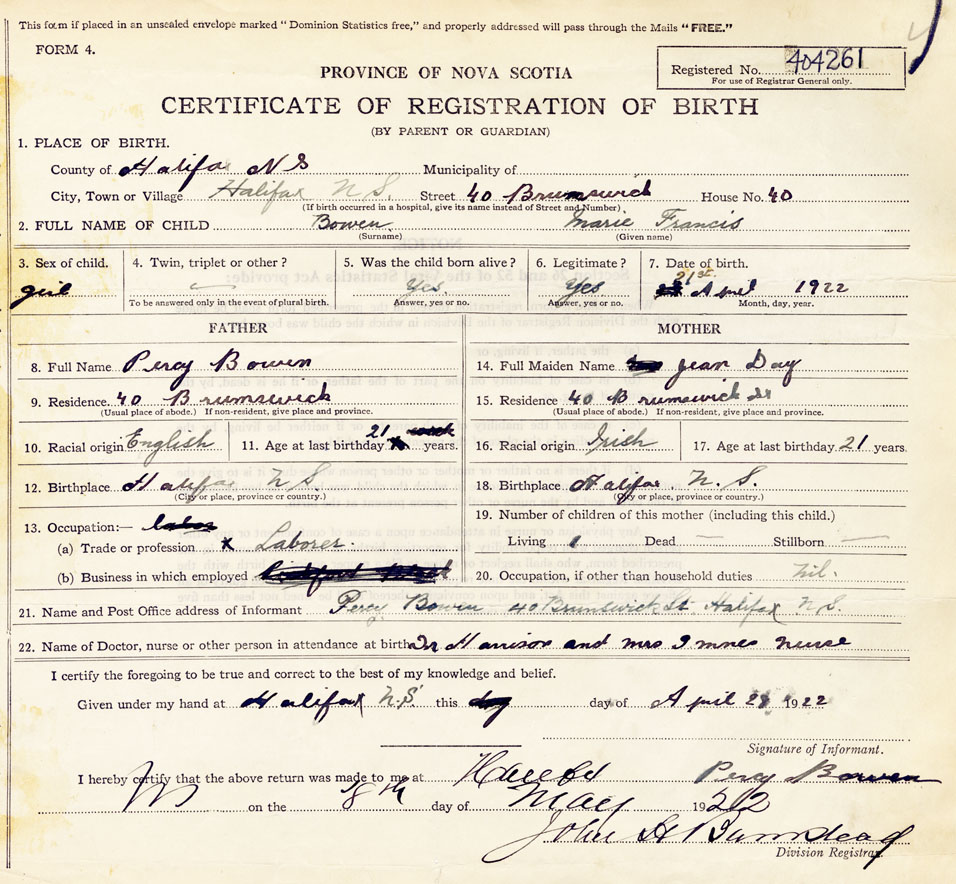 This form if placed in an unsealed envelope marked "Dominion Statistics free," and properly addressed will pass through the Mails "FREE."
FORM 4.
Registered No. 404261
For use of Registrar General only.
PROVINCE OF NOVA SCOTIA
CERTIFICATE OF REGISTRATION OF BIRTH
(BY PARENT OR GUARDIAN)
1. PLACE OF BIRTH.
County of Halifax N S Municipality of
City, Town or Village Halifax N.S. Street 40 Brunswick House No. 40
(If birth occurred in a hospital, give its name instead of Street and Number)
2. FULL NAME OF CHILD Bowen Marie Francis
(Surname) (Given name)
3. Sex of child. 4. Twin, triplet or other? 5. Was the child born alive? 6. Legitimate? 7. Date of birth.
girl Yes. Yes 21st April 1922
To be answered only in the event of plural birth. Answer, yes or no. Answer, yes or no. Month, day, year.
FATHER MOTHER
8. Full Name Percy Bowen 14. Full Maiden Name Jean Day
9. Residence 40 Brunswick 15. Residence 40 Brunswick St
(Usual place of abode.) If non-resident, give place and province. (Usual place of abode.) If non-resident, give place and province.
10. Racial origin English 11. Age at last birthday 21 years. 16. Racial origin Irish 17. Age at last birthday 21 years.
12. Birthplace Halifax N.S. 18. Birthplace Halifax N.S.
(City or place, province or country.) (City or place, province or country.)
13. Occupation:— labor 19. Number of children of this mother (including this child.)
(a) Trade or profession x Laborer. Living 1 Dead — Stillborn —
(b) Business in which employed 20. Occupation, if other than household duties nil.
21. Name and Post Office address of Informant Percy Bowen 40 Brunswick St Halifax N.S.
22. Name of Doctor, nurse or other person in attendance at birth Dr Harrison and mrs nurse
I certify the foregoing to be true and correct to the best of my knowledge and belief.
Given under my hand at Halifax N.S. this day day of April 29 1922
Signature of Informant.
I hereby certify that the above return was made to me at Percy Bowen
on the 8th day of May 1922
John H
Division Registrar.